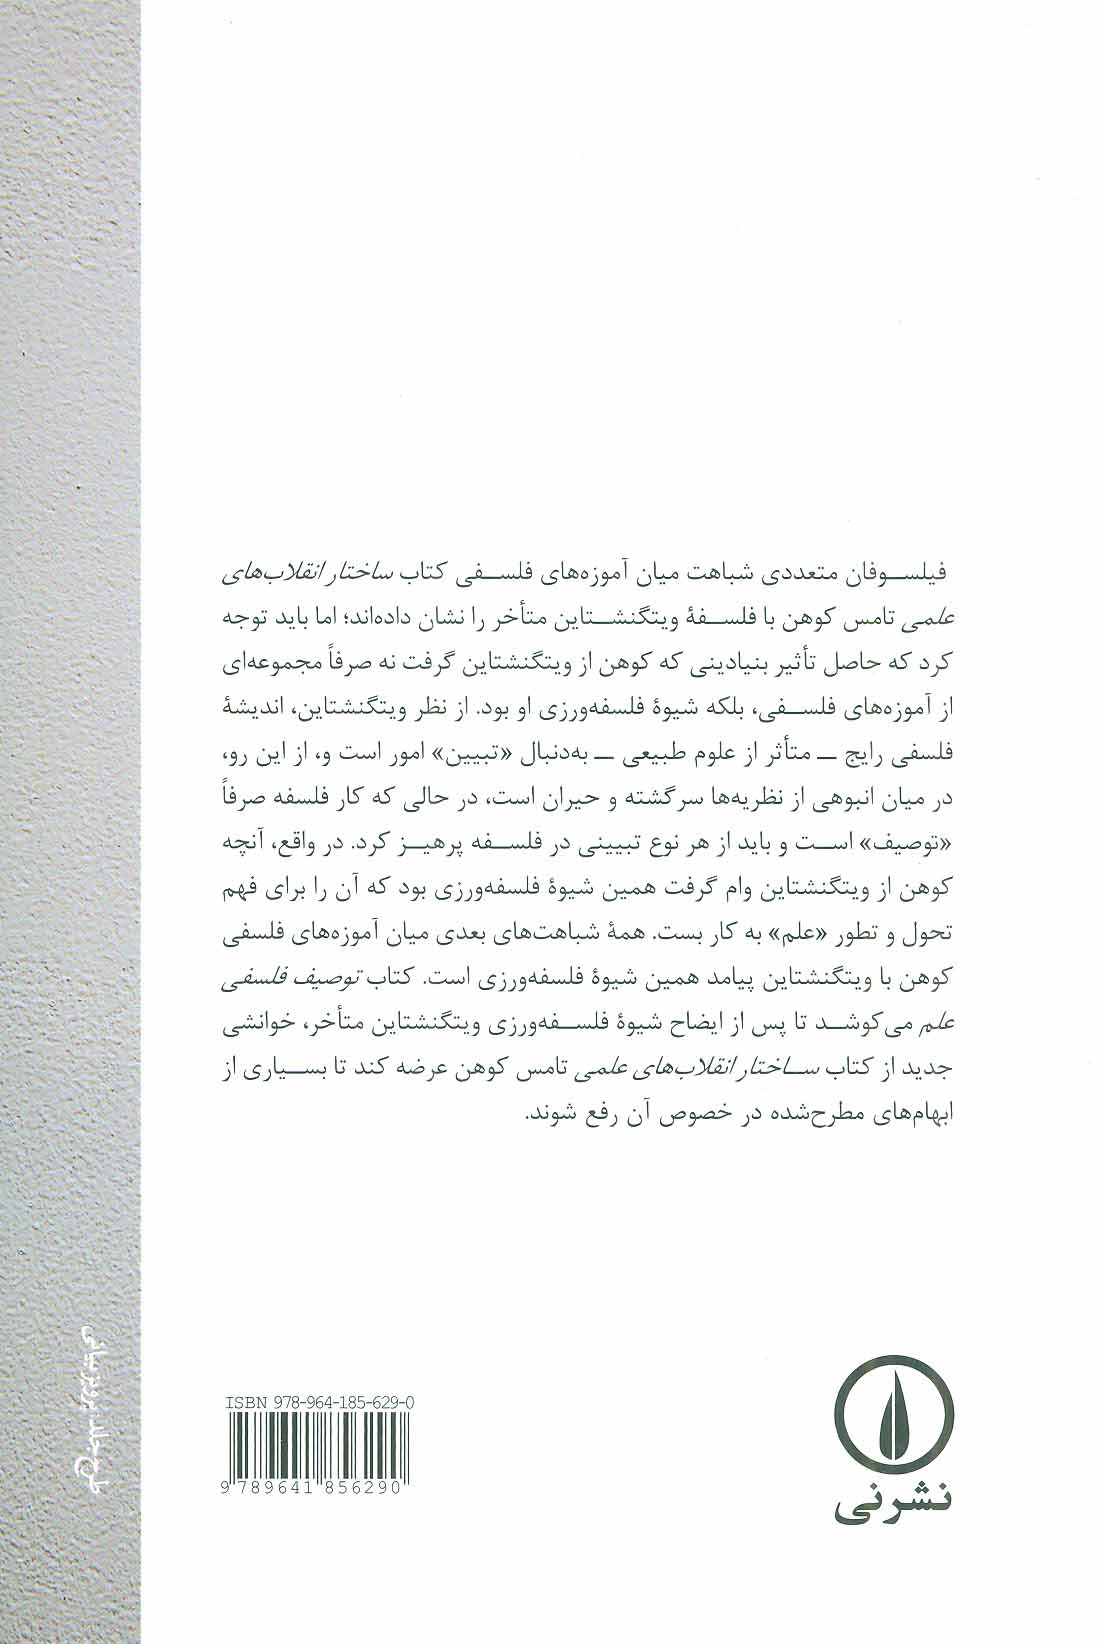 فیلسوفان متعددی شباهت میان آموزه‌های فلسفی کتاب ساختار انقلاب‌های
علمی تامس کوهن با فلسفهٔ ویتگنشتاین متأخر را نشان داده‌اند؛ اما باید توجه
کرد که حاصل تأثیر بنیادینی که کوهن از ویتگنشتاین گرفت نه صرفاً مجموعه‌ای
از آموزه‌های فلسفی، بلکه شیوهٔ فلسفه‌ورزی او بود. از نظر ویتگنشتاین، اندیشهٔ
فلسفی رایج ــ متأثر از علوم طبیعی ــ به‌دنبال «تبیین» امور است و، از این رو،
در میان انبوهی از نظریه‌ها سرگشته و حیران است، در حالی که کار فلسفه صرفاً
«توصیف» است و باید از هر نوع تبیینی در فلسفه پرهیز کرد. در واقع، آنچه
کوهن از ویتگنشتاین وام گرفت همین شیوهٔ فلسفه‌ورزی بود که آن را برای فهم
تحول و تطور «علم» به کار بست. همهٔ شباهت‌های بعدی میان آموزه‌های فلسفی
کوهن با ویتگنشتاین پیامد همین شیوهٔ فلسفه‌ورزی است. کتاب توصیف فلسفی
علم می‌کوشد تا پس از ایضاح شیوهٔ فلسفه‌ورزی ویتگنشتاین متأخر، خوانشی
جدید از کتاب ساختار انقلاب‌های علمی تامس کوهن عرضه کند تا بسیاری از
ابهام‌های مطرح‌شده در خصوص آن رفع شوند.
طرح جلد: پرویز بیانی
ISBN 978-964-185-629-0
9 789641 856290
نشرنی